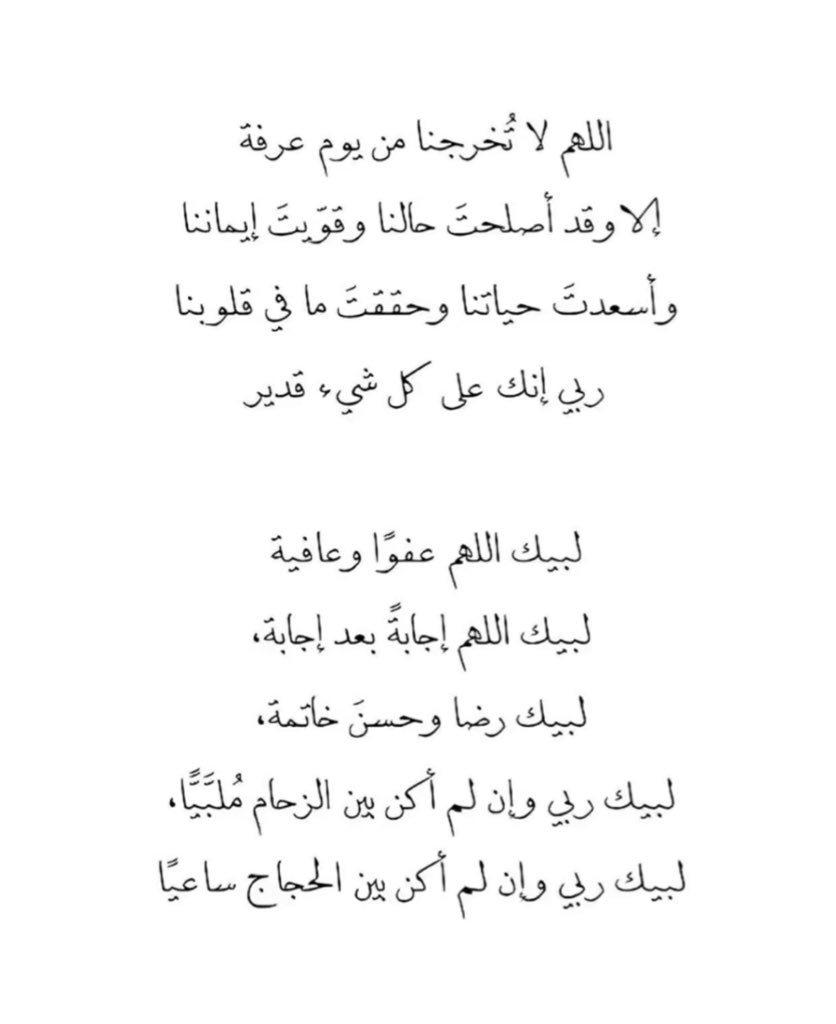 اللهم لا تُخرجنا من يوم عرفة
إلا وقد أصلحتَ حالنا وقوّيتَ إيماننا
وأسعدتَ حياتنا وحققتَ ما في قلوبنا
ربي إنك على كل شيء قدير
لبيك اللهم عفوًا وعافية
لبيك اللهم إجابةً بعد إجابة،
لبيك رضا وحسنَ خاتمة،
لبيك ربي وإن لم أكن بين الزحام مُلبَّيًّا،
لبيك ربي وإن لم أكن بين الحجاج ساعيًا